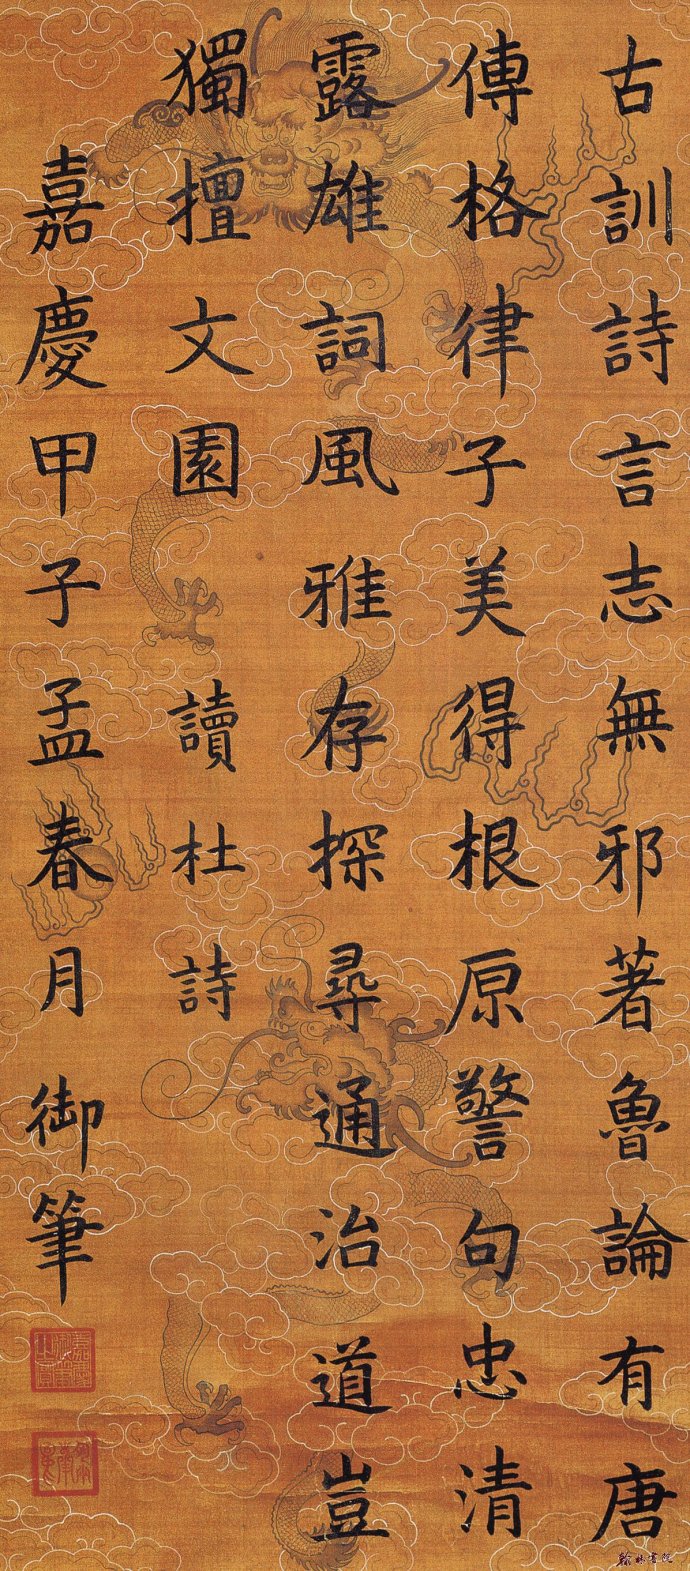 古訓詩言志無邪著魯論有唐
傳格律子美得根原警句忠清
露雄詞風雅存探尋通治道豈
獨擅文園
讀杜詩
嘉慶甲子孟春月御筆